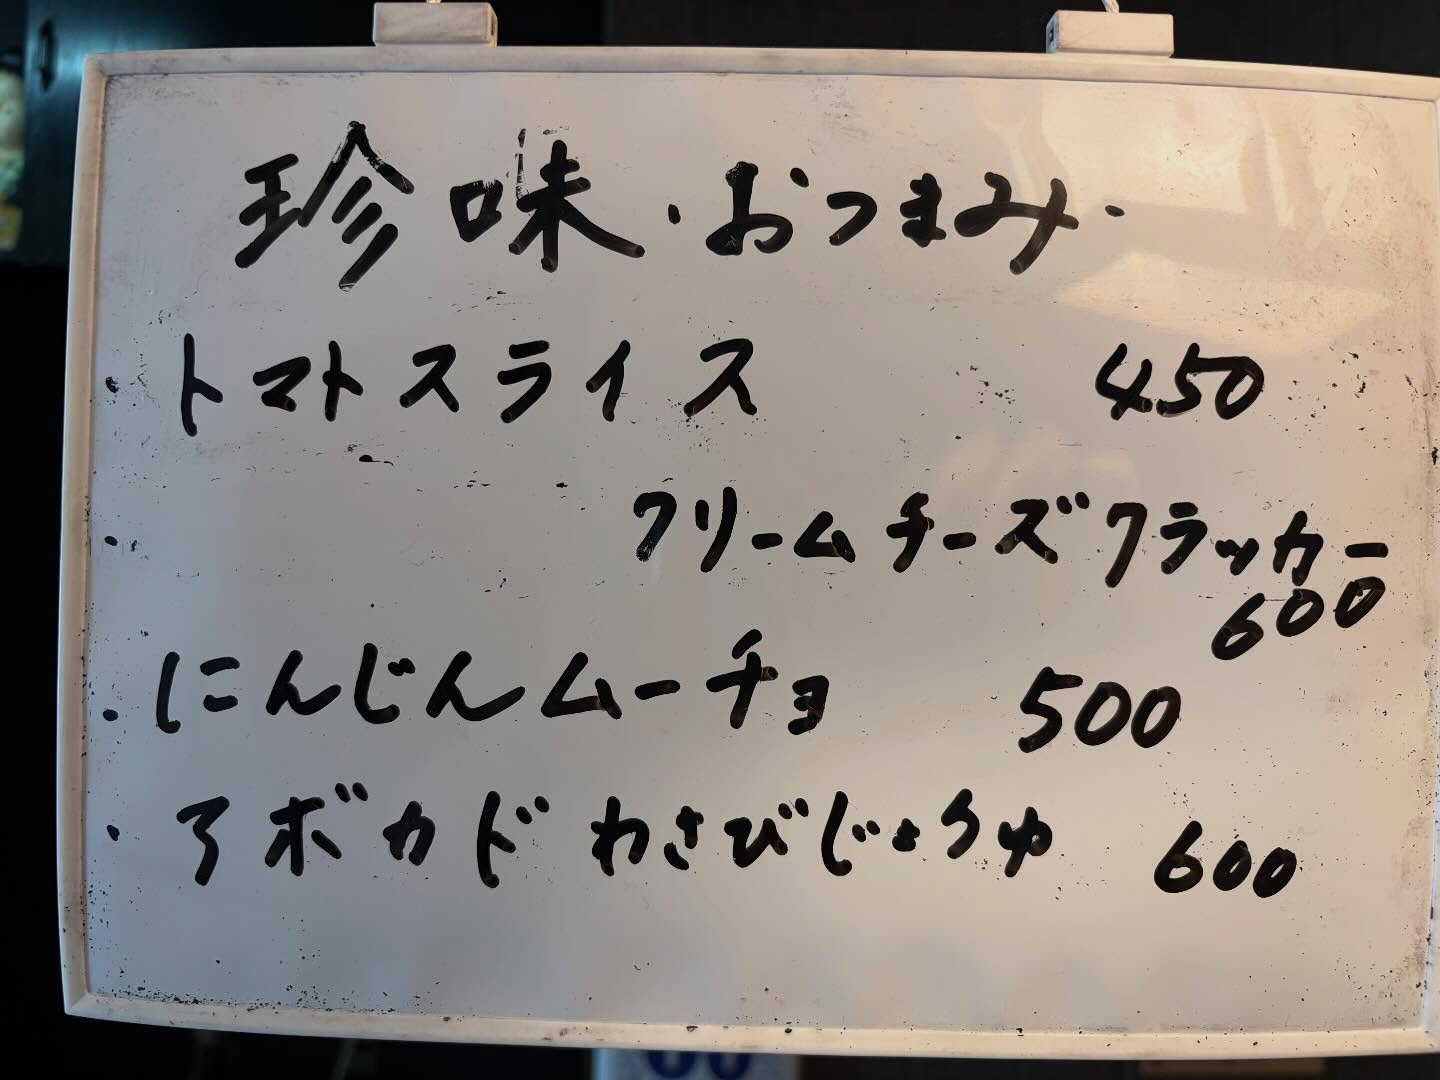 珍味・おつまみ・
・トマトスライス 450
・ クリームチーズクラッカー
600
・にんじんムーチョ 500
・アボカドわさびじょうゆ 600